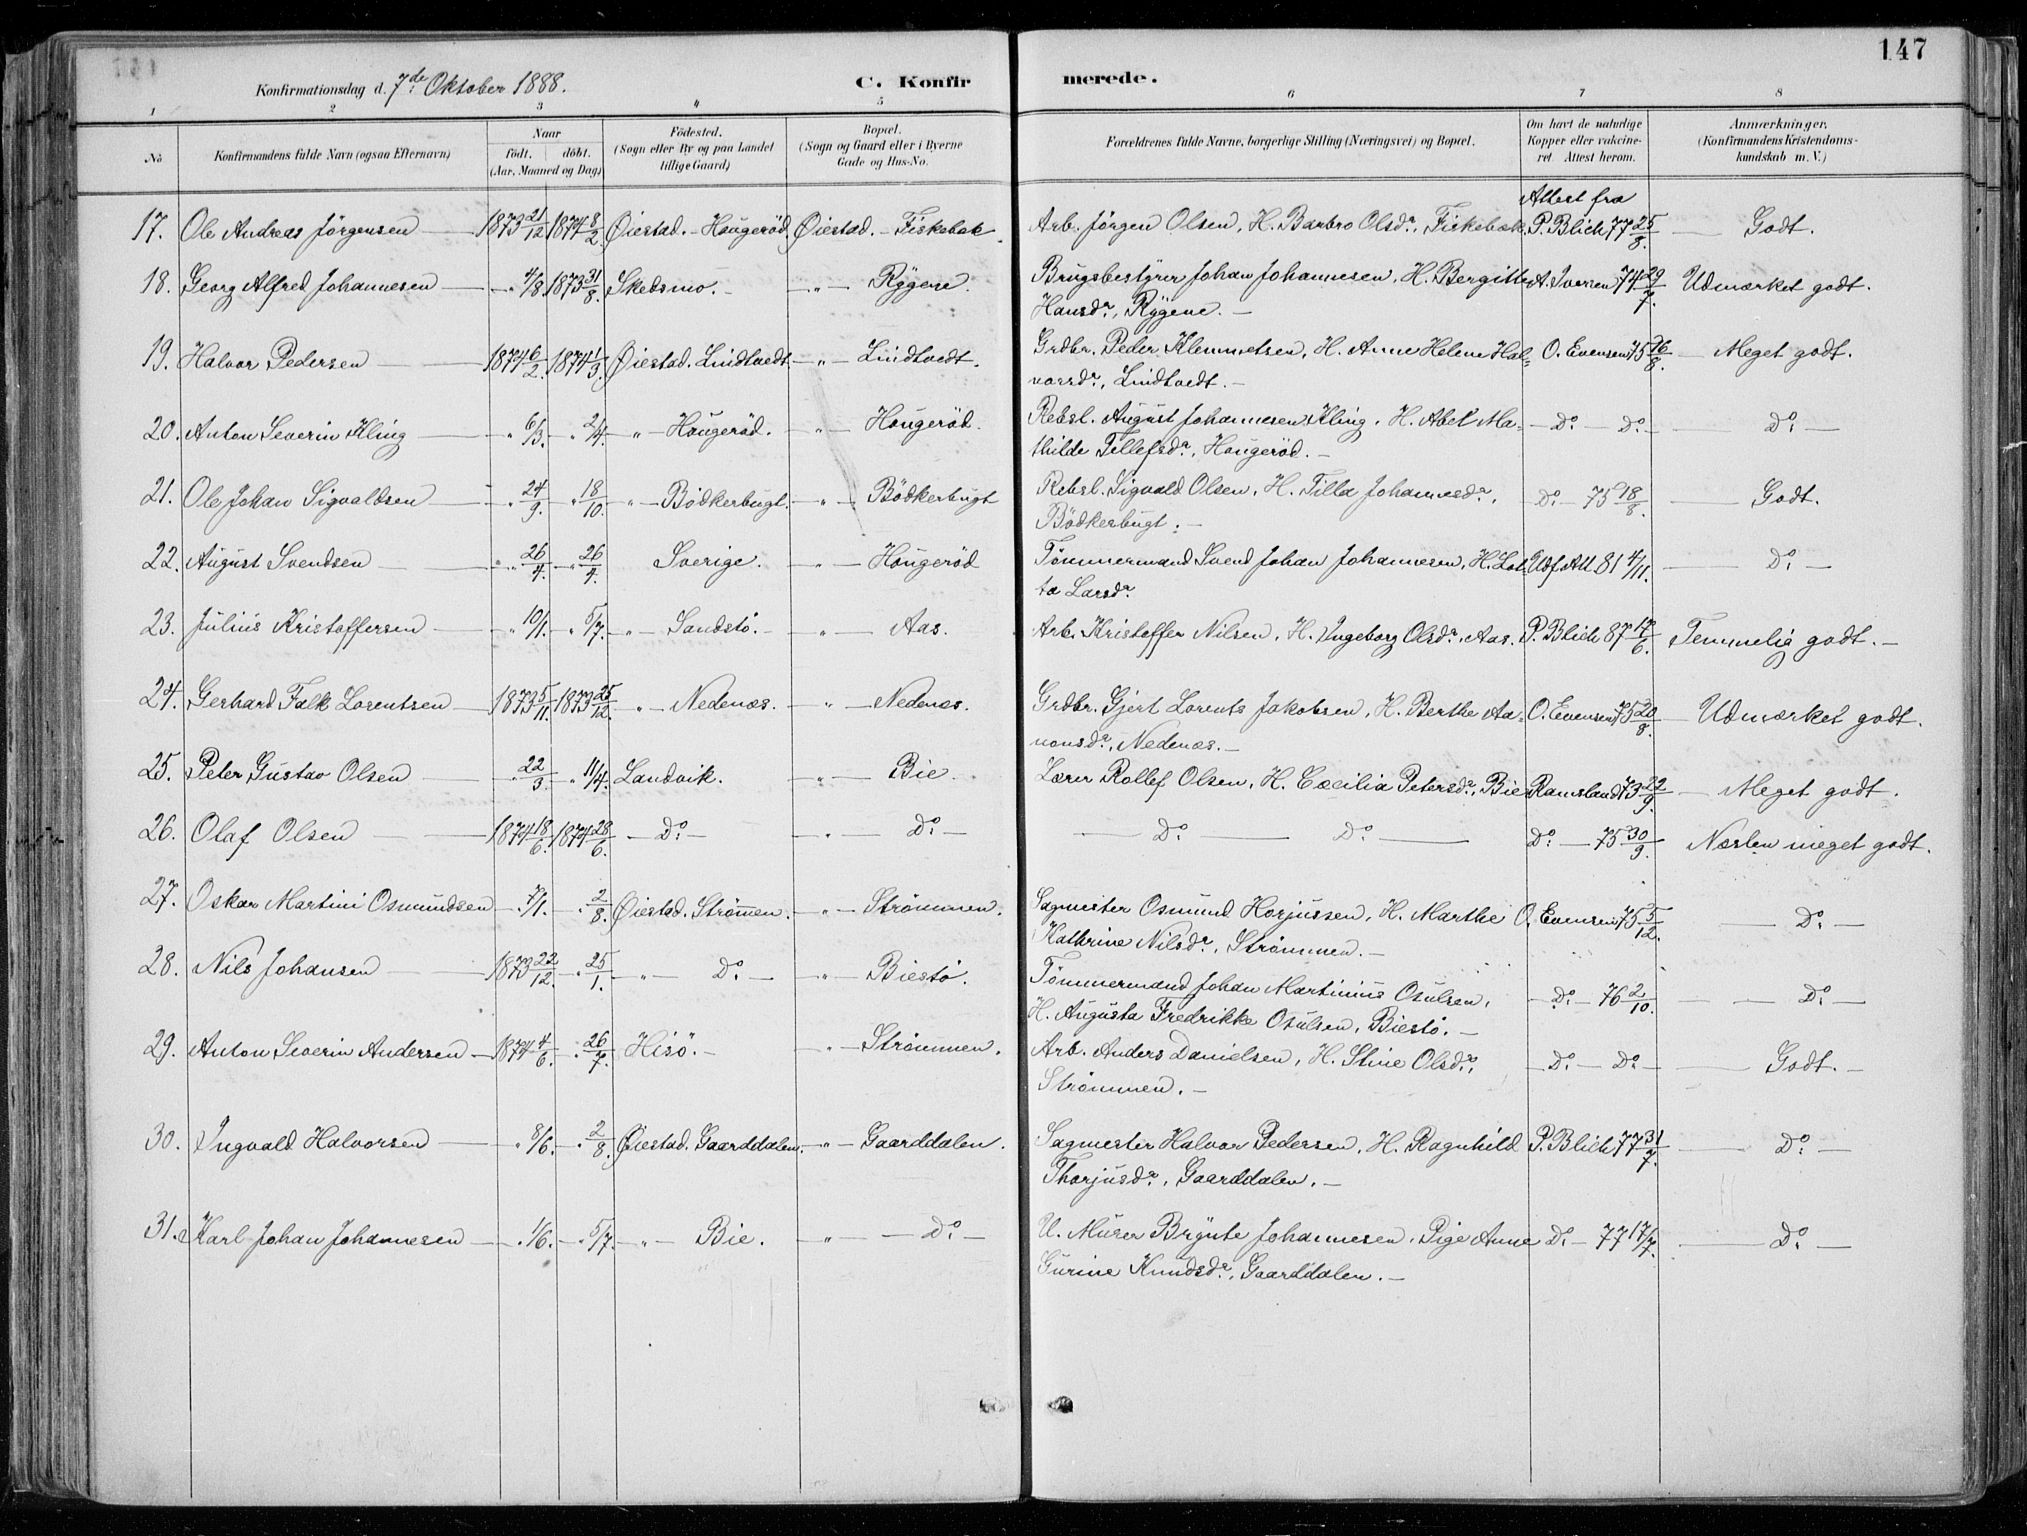 147
Konfirmationsdag d. 7de Oktober 1888.
C. Konfirmerede.
1 2 3 " 5 6 7 8
No
Konfirmandens fulde Navn (ogsaa Efternavn)
Naar
födt. döbt.
(Aar, Maaned og Dag)
Födested.
(Sogn eller By og paa Landet tillige Gaard)
Bopæl.
(Sogn og Gaard eller i Byerne Gade og Hus-No.
Forældrenes fulde Navne, borgerlige Stilling (Næringsvei) og Bopæl.
Om havt de naturlige Kopper eller vakcineret. Attest herom.
Anmærkninger.
(Konfirmandens Kristendomskundskab m. V.)
Attest fra
17. Ole Andreas Jörgensen 1873 21/12 1874 8/2 Öiestad. - Haugeröd. Öiestad. - Fiskebæk. Arb. Jörgen Olsen, H. Barbro Olsdr, Fiskebæk. P. Blich 77 25/8. Godt.
18. Georg Alfred Johannesen " 4/8 1873 31/8. Skedsmo. - " Rygene. Brugsbestyrer Johan Johannesen, H. Bergitte A. Iversen 74 29/7. Udmærket godt.
Hansdr, Rygene. -
19. Halvor Pedersen 1874 6/2. 1874 1/3. Öiestad. Lindtvedt. " Lindtvedt. Grdbr. Peder Klemmetsen, H. Anne Helene Hal= O. Evensen 75 26/8. Meget godt.
vorsdr, Lindtvedt. -
20. Anton Severin Kling " 6/3. " 2/4. " Haugeröd. " Haugeröd. Rebsl. August Johannesen Kling, H. Abel Ma= Do. - Do. - Do. -
thilde Tellefsdr, Haugeröd. -
21. Ole Johan Sigvaldsen " 24/9. " 18/10. " Bödkerbugt. " Bödkerbugt Rebsl. Sigvald Olsen, H. Tilla Johannesdr, Do. - 75 18/8. Godt.
Bödkerbugt. -
22. August Svendsen " 26/4. 26/4. Sverige. " Haugeröd Tömmermand Svend Johan Johannesen, H. Lot= Udf. Att 81 4/11. Do. -
ta Larsdr
23. Julius Kristoffersen " 10/1. " 5/7. " Sandstö. - " Aas. Arb. Kristoffer Nilsen, H. Ingeborg Olsdr, Aas. P. Blich 87 17/6. Temmelig godt. -
24. Gerhard Falk Lorentsen 1873 5/11. 1873 25/12. " Nedenæs. " Nedenæs. Grdbr. Gjert Lorents Jakobsen, H. Berthe Aa= O. Evensen 75 20/8. Udmærket godt.
nonsdr, Nedenæs. -
25. Peter Gustav Olsen " 22/3. " 11/4. Landvik. " Bie. Lærer Rollef Olsen, H. Cæcilia Petersdr, Bie Ramsland 73 22/9. Meget godt.
26. Olaf Olsen 1874 18/6. 1874 28/6. Do. - " Do. - Do. Do. Do. 75 30/9. Næsten meget godt.
27. Oskar Martini Osmundsen " 7/1. " 2/8. Öiestad. Strömmen. " Strömmen. Sagmester Osmund Horjussen, H. Marthe O. Evensen 75 5/12. Do. -
Kathrine Nilsdr, Strömmen. -
28. Nils Johansen 1873 22/12. " 25/1. " Do. - " Biestö. Tömmermand Johan Martinius Osulsen, Do. - 76 2/10. Do. -
H. Augusta Fredrikke Osulsen, Biestö. -
29. Anton Severin Andersen 1874 4/6. " 26/7. Hisö. - " Strömmen. Arb. Anders Danielsen, H. Stine Olsdr, Do. - Do. - Godt. -
Strömmen. -
30. Ingvald Halvorsen " 8/6. 2/8. Öiestad. Gaarddalen. " Gaarddalen. Sagmester Halvor Pedersen, H. Ragnhild P. Blich 77 31/7. Do. -
Thorjusdr, Gaarddalen. -
31. Karl Johan Johannesen " 1/6. " 5/7. " Bie. " Do. - U. Murer Brynte Johannesen, Pige Anne Do. - 77 17/7. Do. -
Gurine Knudsdr, Gaarddalen. -